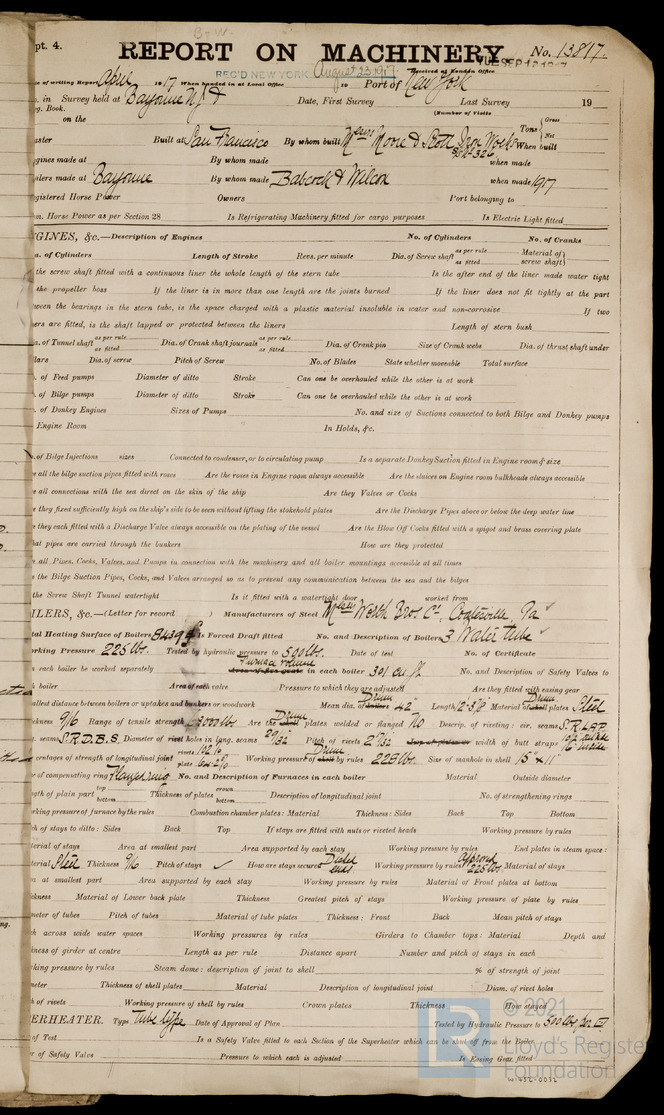 pt. 4. REPORT ON MACHINERY No. 13817.
REC'D NEW YORK August 23 1917 TUE SEP 18 1917
of writing Report April 1917 When handed in at Local Office 19 Port of New York Received at London Office
in Survey held at Bayonne N.J. Date, First Survey Last Survey 19
g. Book. (Number of Visits
on the Tons { Gross Net
aster Built at San Francisco By whom built Messrs Moore & Scott Iron Works When built
gines made at By whom made when made
ilers made at Bayonne By whom made Babcock & Wilcox when made 1917
gistered Horse Power Owners Port belonging to
m. Horse Power as per Section 28 Is Refrigerating Machinery fitted for cargo purposes Is Electric Light fitted
NGINES, &c.—Description of Engines No. of Cylinders No. of Cranks
a. of Cylinders Length of Stroke Revs. per minute Dia. of Screw shaft as per rule as fitted Material of screw shaft }
the screw shaft fitted with a continuous liner the whole length of the stern tube Is the after end of the liner made water tight
the propeller boss If the liner is in more than one length are the joints burned If the liner does not fit tightly at the part
ween the bearings in the stern tube, is the space charged with a plastic material insoluble in water and non-corrosive If two
ers are fitted, is the shaft lapped or protected between the liners Length of stern bush
ia. of Tunnel shaft as per rule as fitted Dia. of Crank shaft journals as per rule as fitted Dia. of Crank pin Size of Crank webs Dia. of thrust shaft under
llars Dia. of screw Pitch of Screw No. of Blades State whether moveable Total surface
. of Feed pumps Diameter of ditto Stroke Can one be overhauled while the other is at work
. of Bilge pumps Diameter of ditto Stroke Can one be overhauled while the other is at work
. of Donkey Engines Sizes of Pumps No. and size of Suctions connected to both Bilge and Donkey pumps
Engine Room In Holds, &c.
. of Bilge Injections sizes Connected to condenser, or to circulating pump Is a separate Donkey Suction fitted in Engine room & size
e all the bilge suction pipes fitted with roses Are the roses in Engine room always accessible Are the sluices on Engine room bulkheads always accessible
e all connections with the sea direct on the skin of the ship Are they Valves or Cocks
e they fixed sufficiently high on the ship's side to be seen without lifting the stokehold plates Are the Discharge Pipes above or below the deep water line
e they each fitted with a Discharge Valve always accessible on the plating of the vessel Are the Blow Off Cocks fitted with a spigot and brass covering plate
hat pipes are carried through the bunkers How are they protected
e all Pipes, Cocks, Valves, and Pumps in connection with the machinery and all boiler mountings accessible at all times
e the Bilge Suction Pipes, Cocks, and Valves arranged so as to prevent any communication between the sea and the bilges
the Screw Shaft Tunnel watertight Is it fitted with a watertight door worked from
ILERS, &c.—(Letter for record ) Manufacturers of Steel Messrs Worth Bros. Co., Coatesville, Pa
tal Heating Surface of Boilers 8439 Is Forced Draft fitted No. and Description of Boilers 3 Water tube
orking Pressure 225 lbs. Tested by hydraulic pressure to 500 lbs. Date of test No. of Certificate
n each boiler be worked separately Furnace volume in each boiler 301 cu. ft. No. and Description of Safety Valves to
ch boiler Area of each valve Pressure to which they are adjusted Are they fitted with easing gear
allest distance between boilers or uptakes and bunkers or woodwork Mean dia. of Drum 42" Length Material of Drum plates Steel
ickness 9/16 Range of tensile strength Are the Drum plates welded or flanged No Descrip. of riveting: cir. seams S.R. LAP.
g. seams S.R.D.B.S. Diameter of rivet holes in long. seams 29/32 Pitch of rivets width of butt straps
centages of strength of longitudinal joint rivets plate Working pressure of Drum by rules 225 lbs. Size of manhole in shell 15" x 11"
e of compensating ring Flanged ring No. and Description of Furnaces in each boiler Material Outside diameter
gth of plain part top bottom Thickness of plates crown bottom Description of longitudinal joint No. of strengthening rings
orking pressure of furnace by the rules Combustion chamber plates: Material Thickness: Sides Back Top Bottom
ch of stays to ditto: Sides Back Top If stays are fitted with nuts or riveted heads Working pressure by rules
terial of stays Area at smallest part Area supported by each stay Working pressure by rules End plates in steam space:
terial Steel Thickness 9/16 Pitch of stays ✓ How are stays secured Dished ends Working pressure by rules Approved 225 lbs. Material of stays
m at smallest part Area supported by each stay Working pressure by rules Material of Front plates at bottom
ickness Material of Lower back plate Thickness Greatest pitch of stays Working pressure of plate by rules
meter of tubes Pitch of tubes Material of tube plates Thickness: Front Back Mean pitch of stays
ch across wide water spaces Working pressures by rules Girders to Chamber tops: Material Depth and
ickness of girder at centre Length as per rule Distance apart Number and pitch of stays in each
rking pressure by rules Steam dome: description of joint to shell % of strength of joint
meter Thickness of shell plates Material Description of longitudinal joint Diam. of rivet holes
ch of rivets Working pressure of shell by rules Crown plates Thickness How stayed
ERHEATER. Type Tube type Date of Approval of Plan Tested by Hydraulic Pressure to 500 lbs. per
of Test Is a Safety Valve fitted to each Section of the Superheater which can be shut off from the Boiler
r of Safety Valve Pressure to which each is adjusted Is Easing Gear fitted
© 2021
LR Lloyd's Register
Foundation
W482-0032